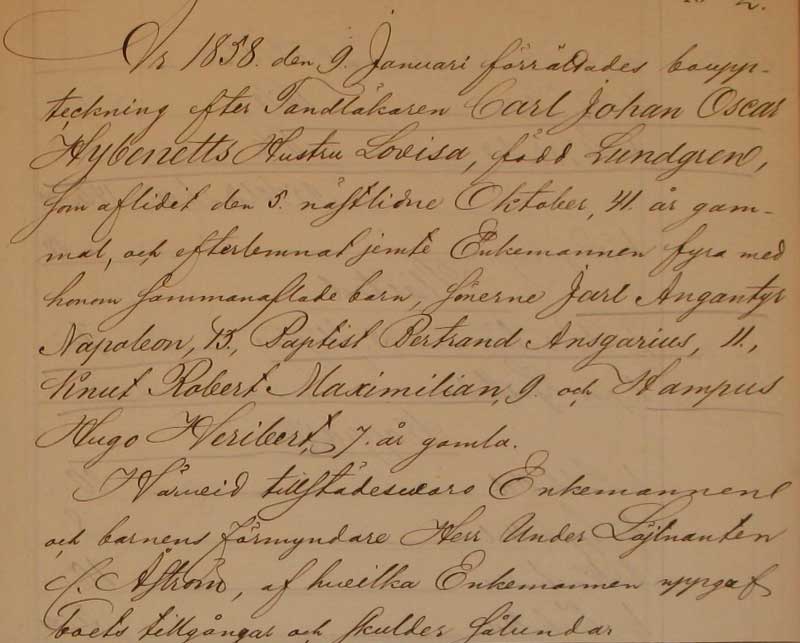 År 1838. den 9. Januari förrättades boupp-
teckning efter Tandläkaren Carl Johan Oscar
Hybenetts Hustru Lovisa, född Lundgren,
som aflidit den 5. nästlidne Oktober, 41. år gam-
mal, och efterlemnat jemte Enkemannen fyra med
honom sammanaflade barn, sönerne Jarl Angantyr
Napoleon, 13., Baptist Bertrand Ansgarius, 11.,
Knut Robert Maximilian, 9. och Hampus
Hugo Heribert, 7. år gamla.
Härveid tillstädesvaro Enkemannen
och barnens förmyndare Herr Under Löjtnanten
C. Åström, af hveilka Enkemannen uppgaf
boets tillgångar och skulder sålunda